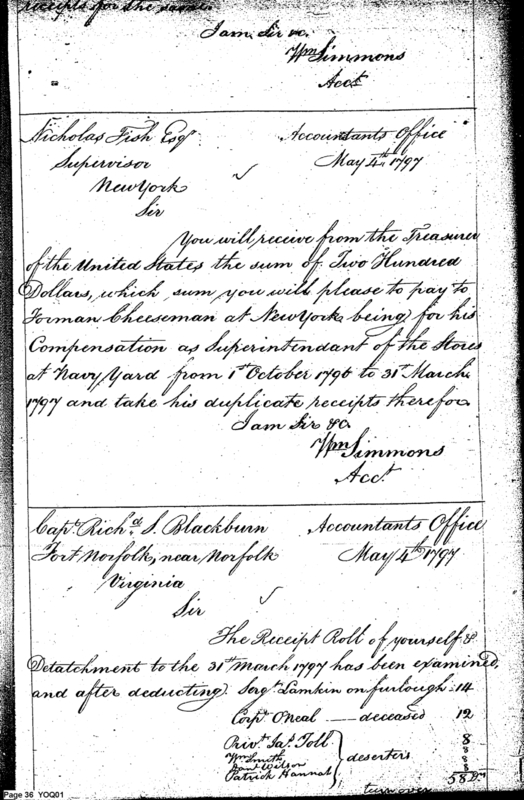 receipts for the same.
I am Sir &c.
Wm Simmons
Acct
Nicholas Fish Esqr
Accountants Office
Supervisor
May 4th, 1797
New York
Sir
You will receive from the Treasurer
of the United States the sum of Two Hundred
Dollars, which sum you will please to pay to
Forman Cheeseman at New York being for his
Compensation as Superintendant of the Stores
at Navy Yard from 1st October 1796 to 31st March
1797 and take his duplicate receipts therefor.
I am Sir &c.
Wm Simmons
Acct.
Capt. Richd. S. Blackburn
Accountants Office
Fort Norfolk, near Norfolk
May 4th 1797
Virginia
Sir
The Receipt Roll of yourself &
Detatchment to the 31st March 1797 has been examined,
and after deducting Sergt. Lamkin on furlough : 14
Corpl. O'Neal — deceased 12
Privt. Jas. Toll 8
Wm Smith 8
Danl Wilson deserters 8
Patrick Hannah 8
58 Drs
turn over
Page 36 YOQ01